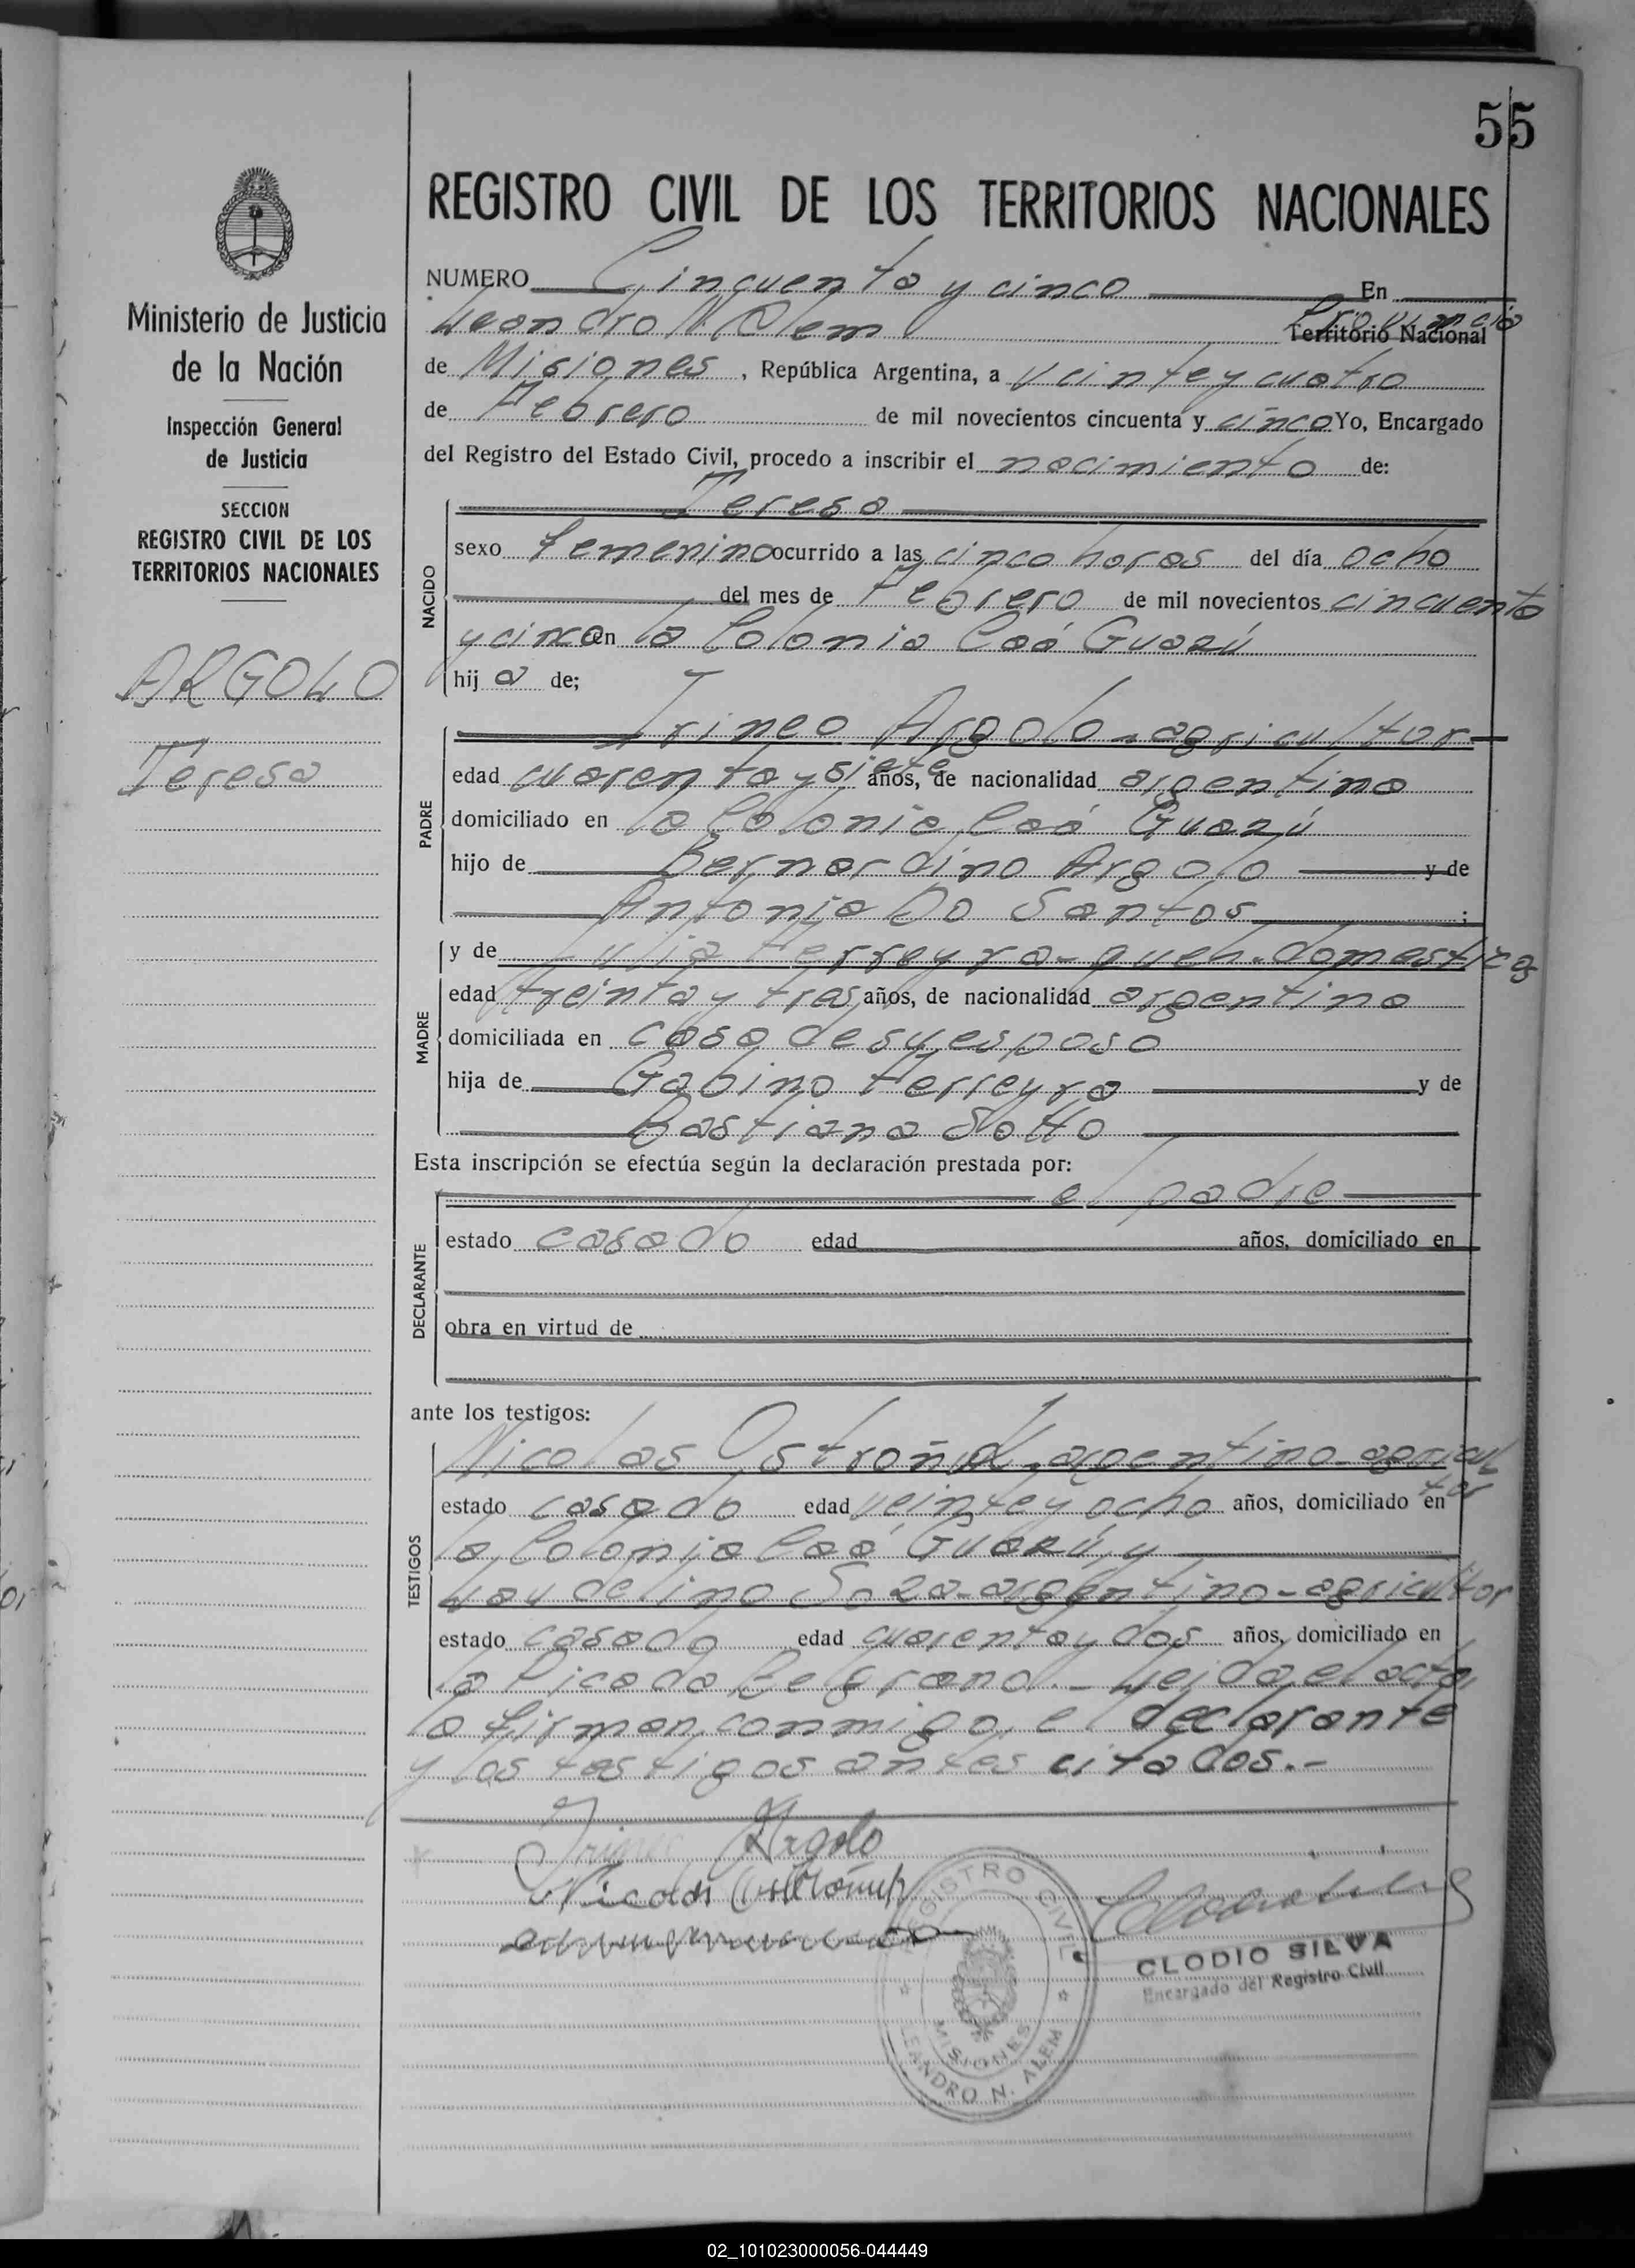 55
REGISTRO CIVIL DE LOS TERRITORIOS NACIONALES
Ministerio de Justicia
de la Nación
Inspección General
de Justicia
SECCION
REGISTRO CIVIL DE LOS
TERRITORIOS NACIONALES
ARGOLO
Teresa
NUMERO Cincuenta y cinco En
Leandro N. Alem Provincia Territorio Nacional
de Misiones, República Argentina, a veinte y cuatro
de Febrero de mil novecientos cincuenta y cinco Yo, Encargado
del Registro del Estado Civil, procedo a inscribir el nacimiento de:
NACIDO
Teresa
sexo femenino ocurrido a las cinco horas del día ocho
del mes de Febrero de mil novecientos cincuenta
y cinco en la Colonia Caá Guazú
hij a de;
PADRE
Irineo Argolo - agricultor
edad cuarenta y siete años, de nacionalidad argentino
domiciliado en la Colonia Caá Guazú
hijo de Bernardino Argolo y de
Antonia Do Santos;
MADRE
y de Julia Ferreyra - queh. domesticos
edad treinta y tres años, de nacionalidad argentina
domiciliada en casa de su esposo
hija de Gabino Ferreyra y de
Bastiana Sotto
Esta inscripción se efectúa según la declaración prestada por:
DECLARANTE
el padre
estado casado edad años, domiciliado en
obra en virtud de
ante los testigos:
TESTIGOS
Nicolas - argentino - agricultor
estado casado edad veinte y ocho años, domiciliado en
la Colonia Caá Guazú, y
Laudelino - argentino - agricultor
estado casado edad cuarenta y dos años, domiciliado en
la Picada Belgrano. - Leido el acta,
la firman conmigo, el declarante
y los testigos antes citados.-
Argolo
Nicolas
REGISTRO CIVIL
MISIONES
LEANDRO N. ALEM
CLODIO SILVA
Encargado del Registro Civil
02_101023000056-044449